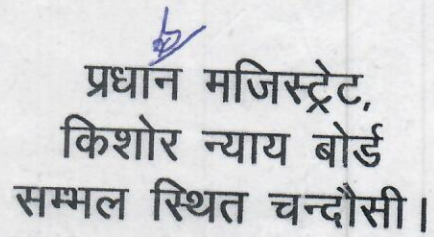 प्रधान मजिस्ट्रेट,
किशोर न्याय बोर्ड
सम्भल स्थित चन्दौसी।